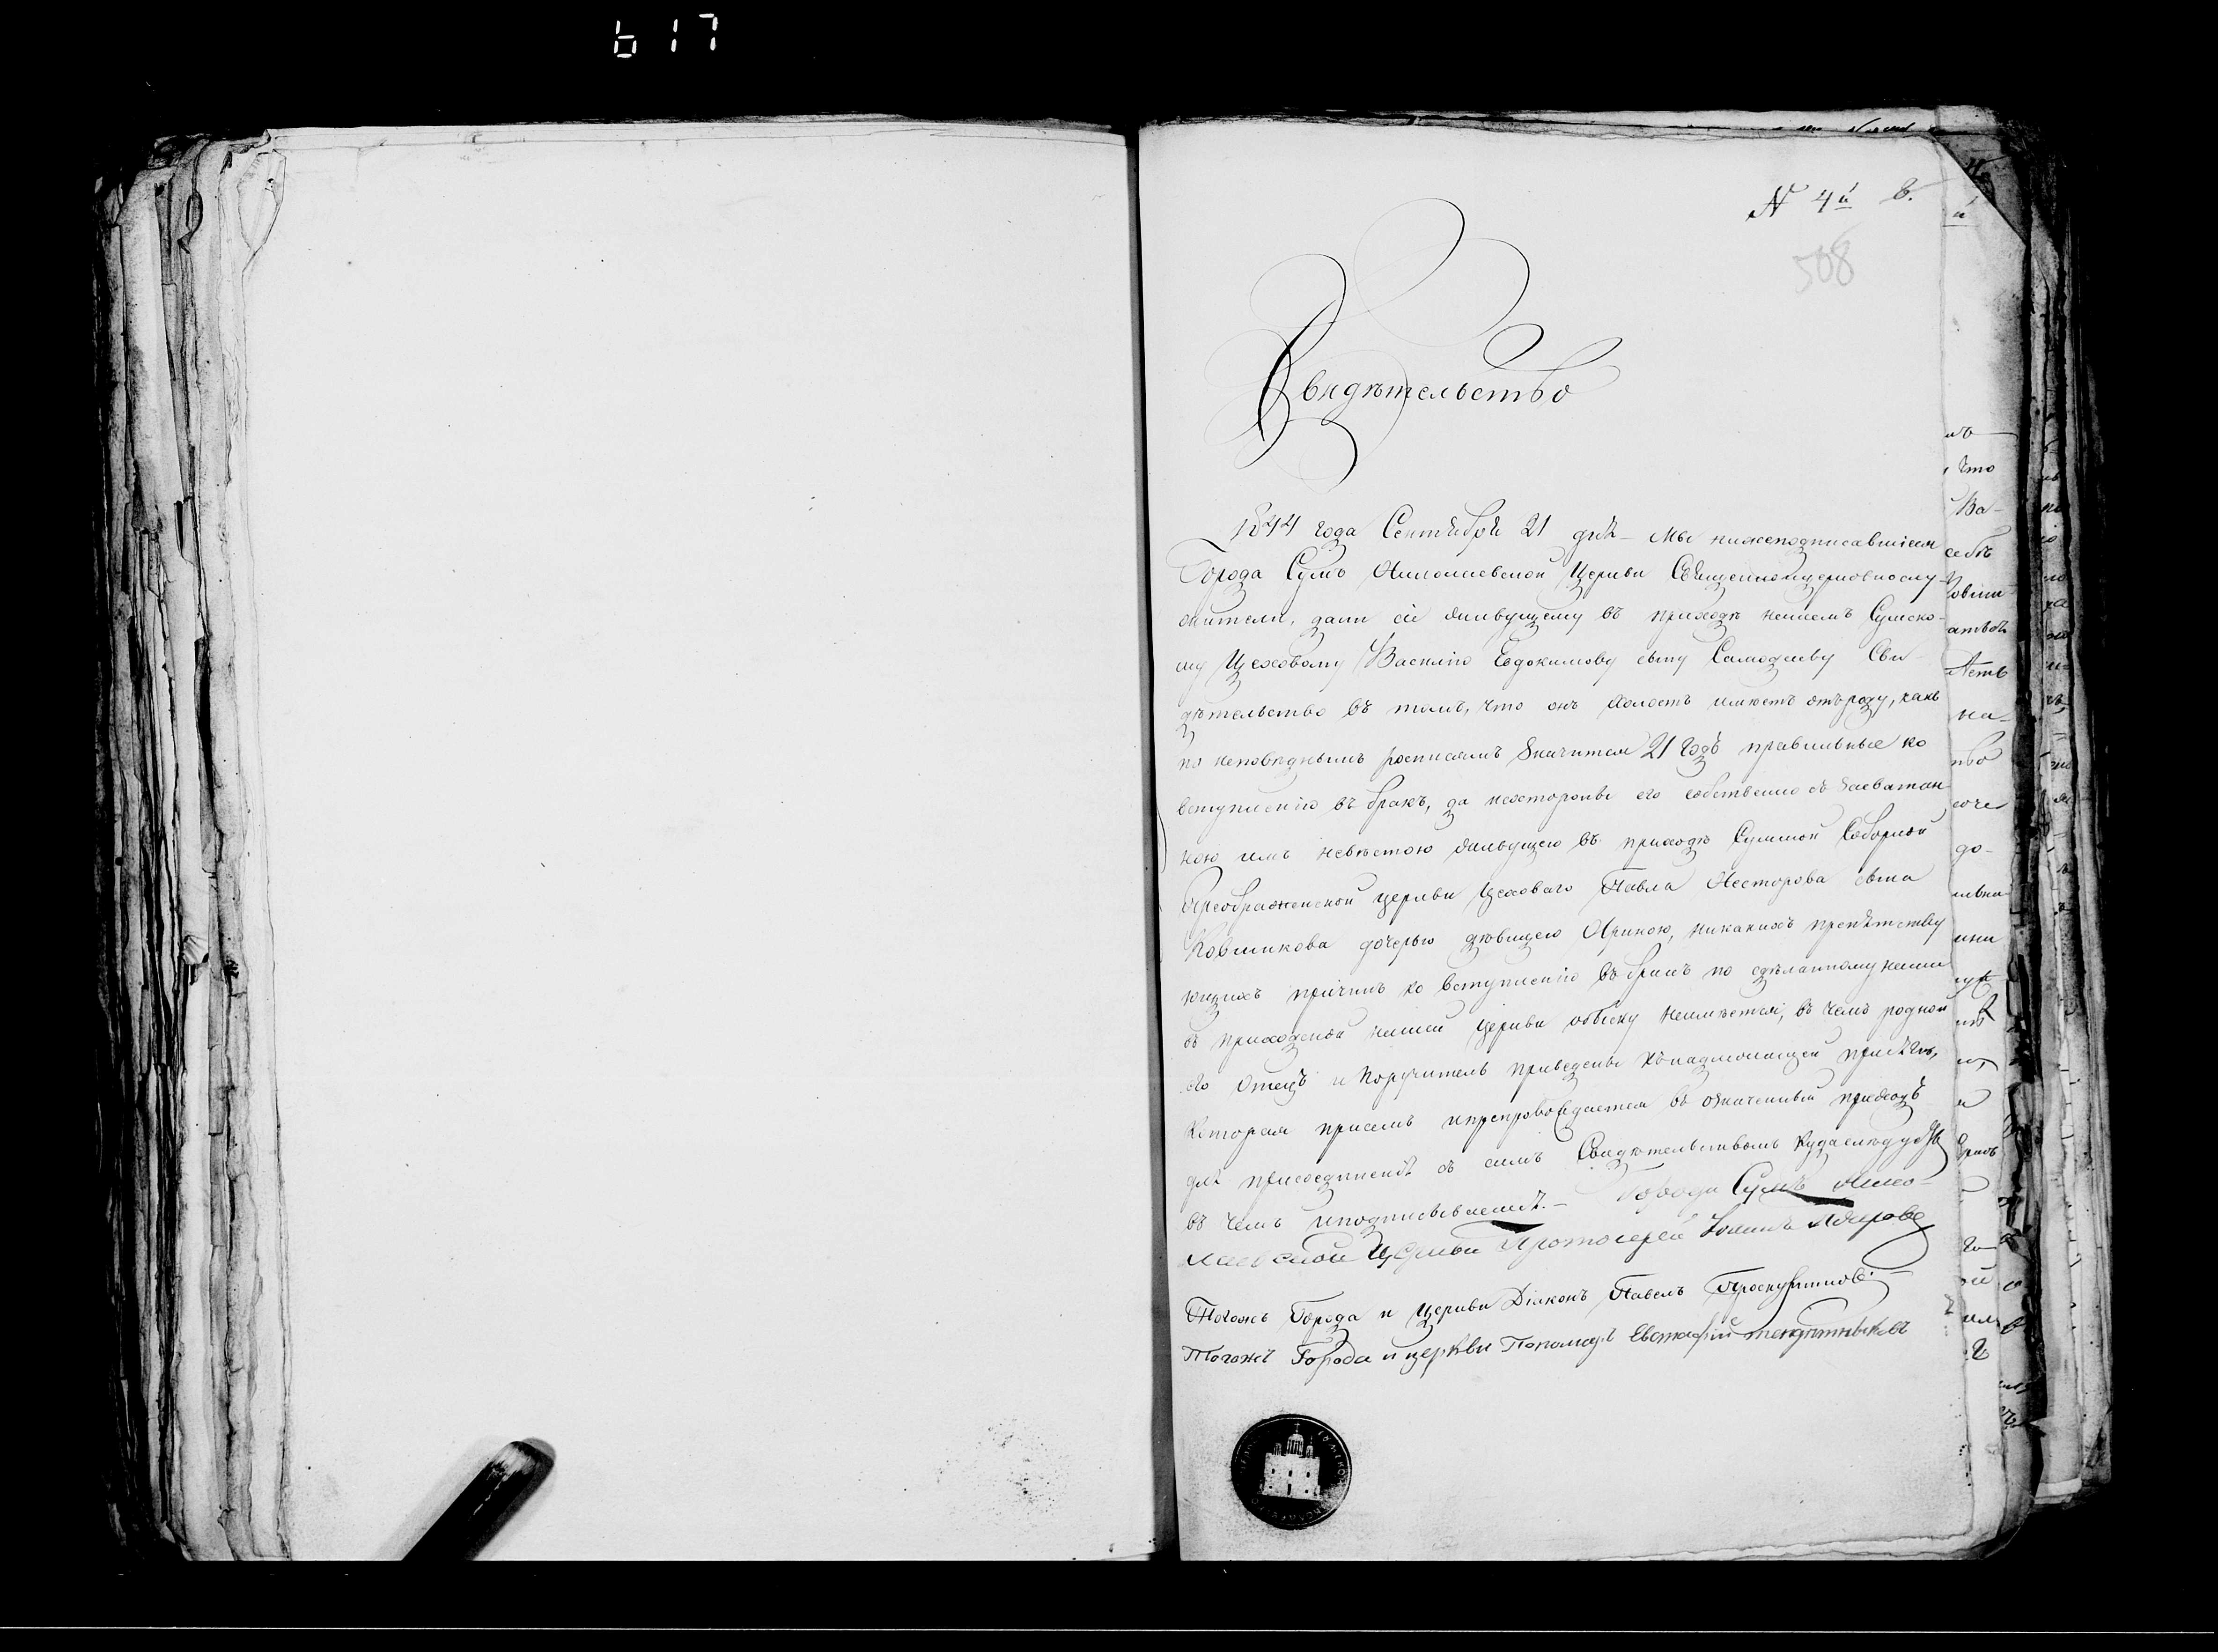 617
N 4й
508
Свидѣтельство
1844 года Сентября 21 дня – Мы нижеподписавшіеся
Города Сумъ Николаевской Церкви Священноцерковнослу-
жители, дали сіе живущему въ приходѣ нашемъ Сумско-
му Цеховому Василію Евдокимову сыну Свѣ-
дѣтельство въ томъ, что онъ холостъ имѣетъ отъ роду, какъ
по исповѣднымъ росписямъ значится 21 годъ правильные ко
вступленію въ бракъ, да изстороны его собственно съ засватан
ною имъ невѣстою живущею въ приходѣ Сумской Соборной
Преображенской церкви Цеховаго Павла Несторова сына
Ковшикова дочерью дѣвицею Ириною, никакихъ препятству
ющихъ причинъ ко вступленію въ бракъ по сдѣланному нами
въ приходѣ нашей Церкви обыску неимѣется, въ чемъ родной
его Отецъ и Поручитель приведены къ надлежащей присягѣ,
которая присемъ и препровождается въ означенный приходъ
для присоединенія съ симъ Свидѣтельствомъ куда слѣдуетъ
въ чемъ и подписываемся. – Города Сумъ Нико-
лаевской Церкви Протоіерей Іоаннъ
Тогожъ Города и Церкви Діаконъ Павелъ
Тогожъ Города и церкви Пономарь Евстафій